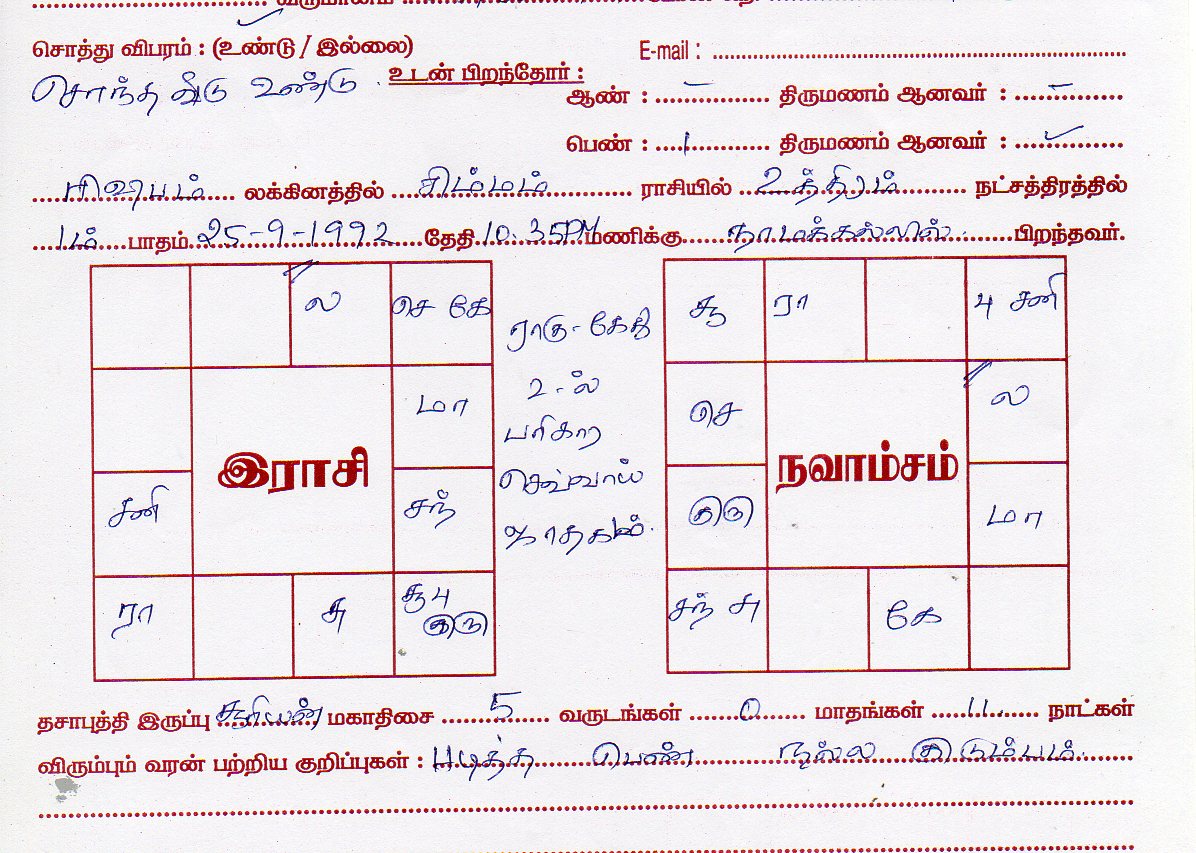 வருமானம்
சொத்து விபரம் : (உண்டு / இல்லை) E-mail : ..........
சொந்த வீடு உண்டு . உடன் பிறந்தோர் :
ஆண் : .... – .... திருமணம் ஆனவர் : .... – ....
பெண் : .... 1 .... திருமணம் ஆனவர் : .... ✓ ....
ரிஷபம் லக்கினத்தில் சிம்மம் ராசியில் உத்திரம் நட்சத்திரத்தில்
1ம் பாதம் 25-9-1992 தேதி 10.35PM மணிக்கு நாமக்கல்லில் பிறந்தவர்.
ல செ கே
மா
இராசி
சனி சந்
ரா சு சூ பு
குரு
ராகு - கேது
2-ல்
பரிகார
செவ்வாய்
ஜாதகம்.
சூ ரா பு சனி
செ ல
நவாம்சம்
குரு மா
சந் சு கே
தசாபுத்தி இருப்பு சூரியன் மகாதிசை 5 வருடங்கள் 0 மாதங்கள் 11 நாட்கள்
விரும்பும் வரன் பற்றிய குறிப்புகள் : படித்த பெண் நல்ல குடும்பம்.